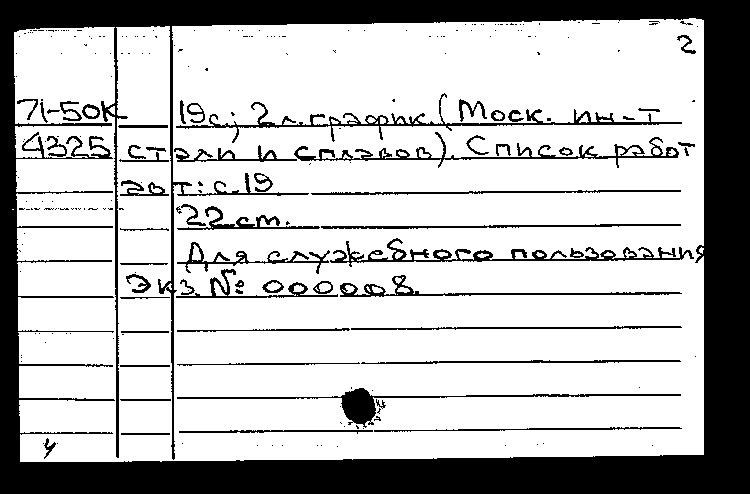 2
71-50К 19с; 2 л. график. (Моск. ин-т
4325 стали и сплавов). Список работ
авт: с. 19
22 см.
Для служебного пользования
Экз. № 000008.
у